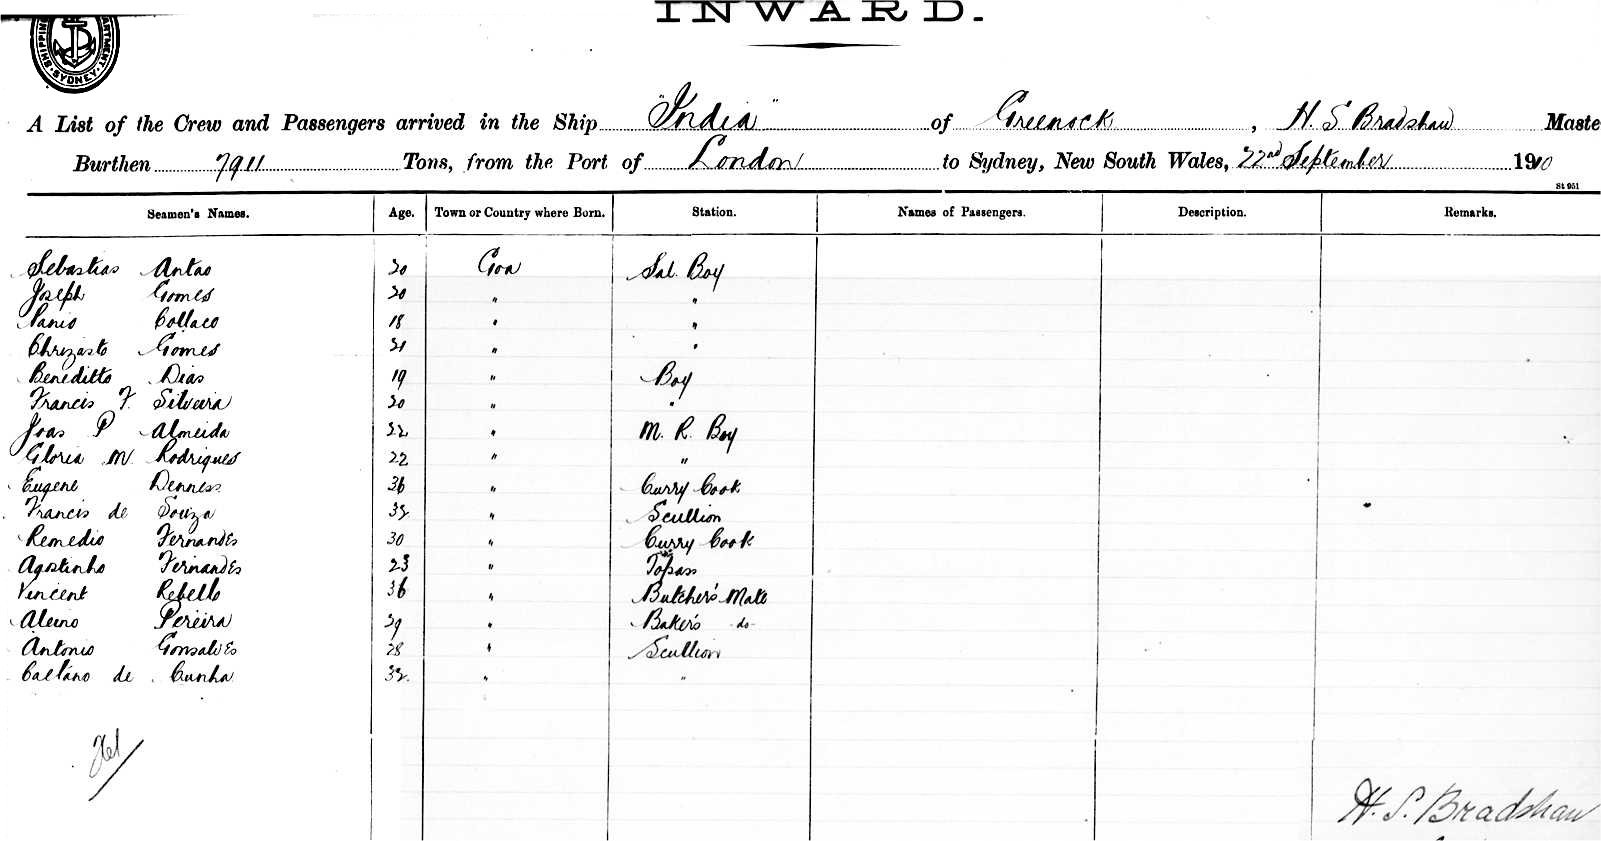 INWARD.
SHIPPING DEPARTMENT SYDNEY
A List of the Crew and Passengers arrived in the Ship "India" of Greenock, H. S. Bradshaw Maste
Burthen 7911 Tons, from the Port of London to Sydney, New South Wales, 22nd September 1910
St 951
Seamen's Names. Age. Town or Country where Born. Station. Names of Passengers. Description. Remarks.
Sebastias Antao 20 Goa Sal. Boy
Joseph Gomes 20 " "
Collaco 18 " "
Chrizasto Gomes 21 " "
Beneditto Dias 19 " Boy
Francis F. Silveira 20 " "
Joas P Almeida 22 " M. R. Boy
Gloria M. Rodrigues 22 " "
Eugene Denness 36 " Curry Cook
Francis de Souza 32 " Scullion
Remedio Fernandes 30 " Curry Cook
Agostinho Fernandes 23 " Topass
Vincent Rebello 36 " Butcher's Mate
Pereira 29 " Baker's do
Antonio Gonsalves 28 " Scullion
Caetano de Cunha 32 " "
H. S. Bradshaw